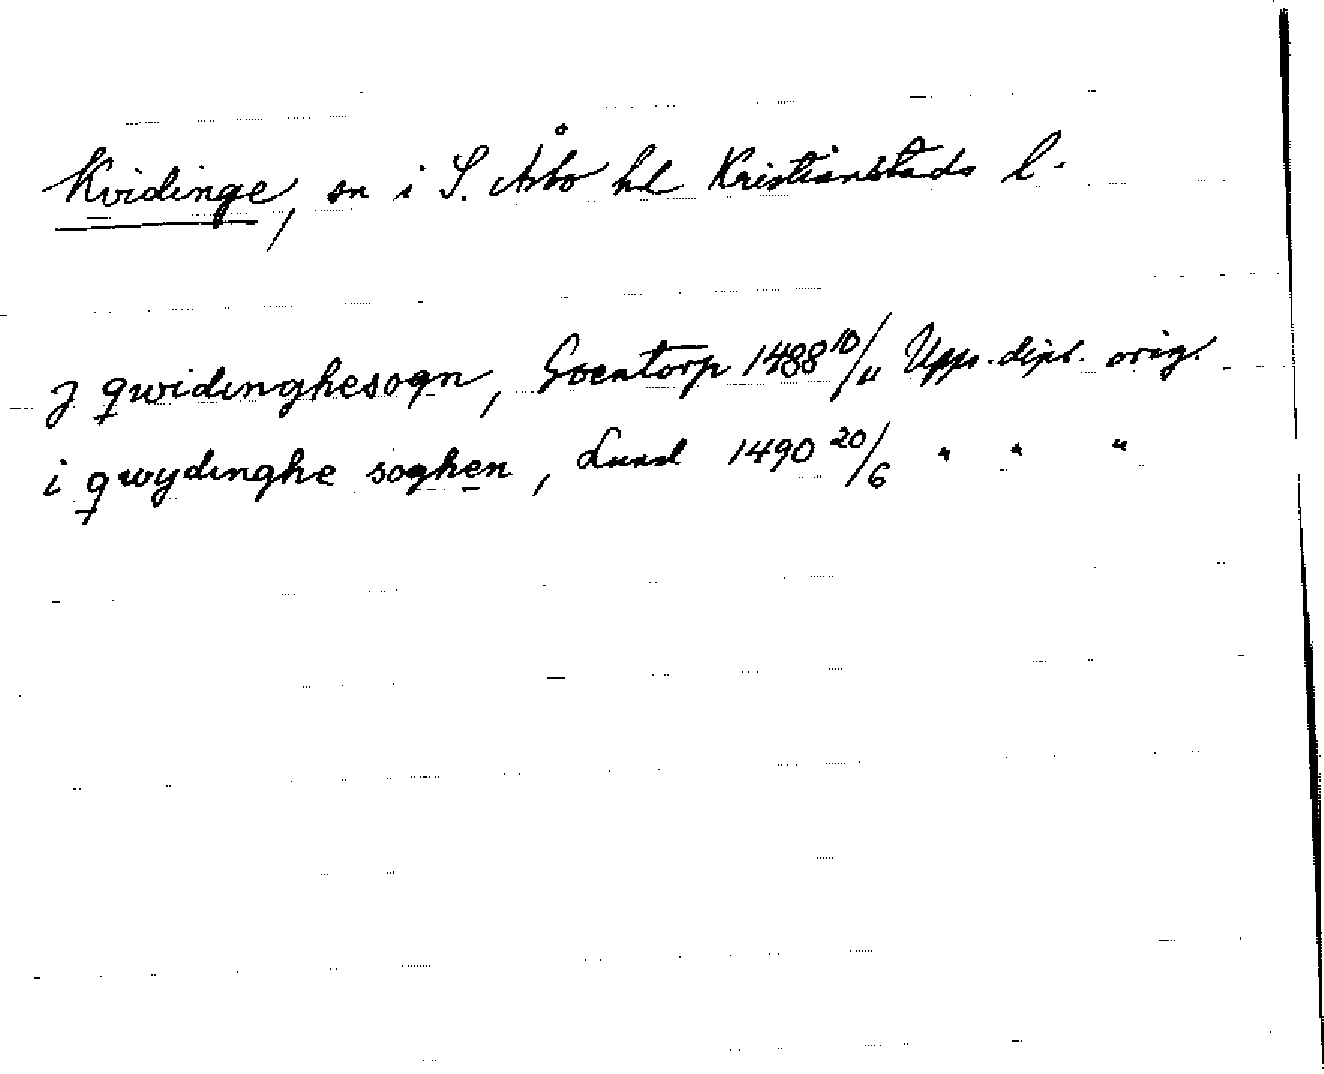 Kvidinge, sn i S. Åsbo hd Kristianstads l.
j qwidinghesogn, Goentorp 1488 10/11 Upps. dipl. orig.
i qwydinghe soghen, Lund 1490 20/6 " " "